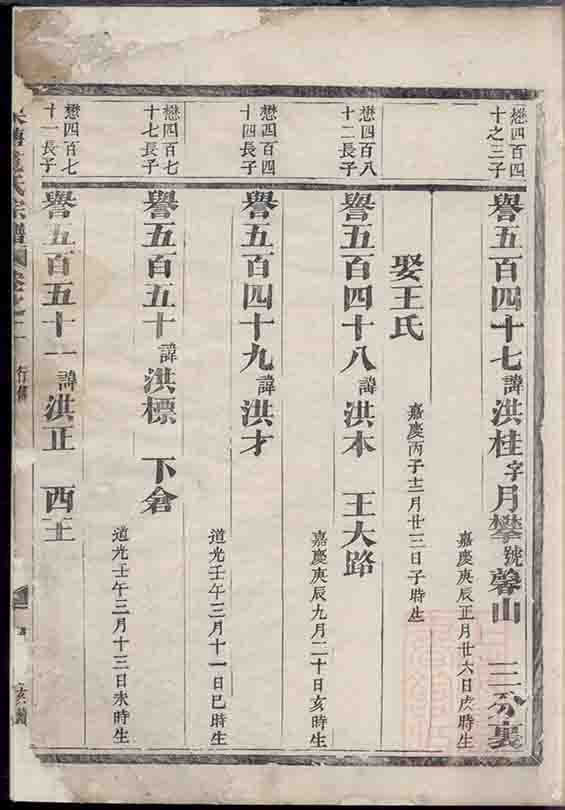 懋四百四
十之三子
譽五百四十七諱洪桂字月攀號馨山　三分裏
嘉慶庚辰正月廿六日戌時生
娶王氏
嘉慶丙子十二月廿三日子時生
懋四百八
十二長子
譽五百四十八諱洪本　王大路
嘉慶庚辰九月二十日亥時生
懋四百四
十四長子
譽五百四十九諱洪才
道光壬午三月十一日巳時生
懋四百七
十七長子
譽五百五十諱洪標　下倉
道光壬午三月十三日未時生
懋四百七
十一長子
譽五百五十一諱洪正　西王
氏宗譜
行傳